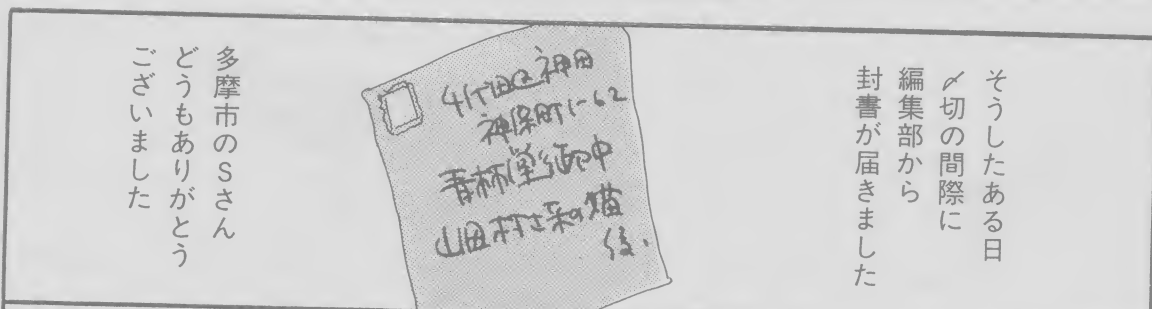 そうしたある日
〆切の間際に
編集部から
封書が届きました
千代田区神田
神保町1-62
青林堂気中
山田村
猫
多摩市のSさん
どうもありがとう
ございました